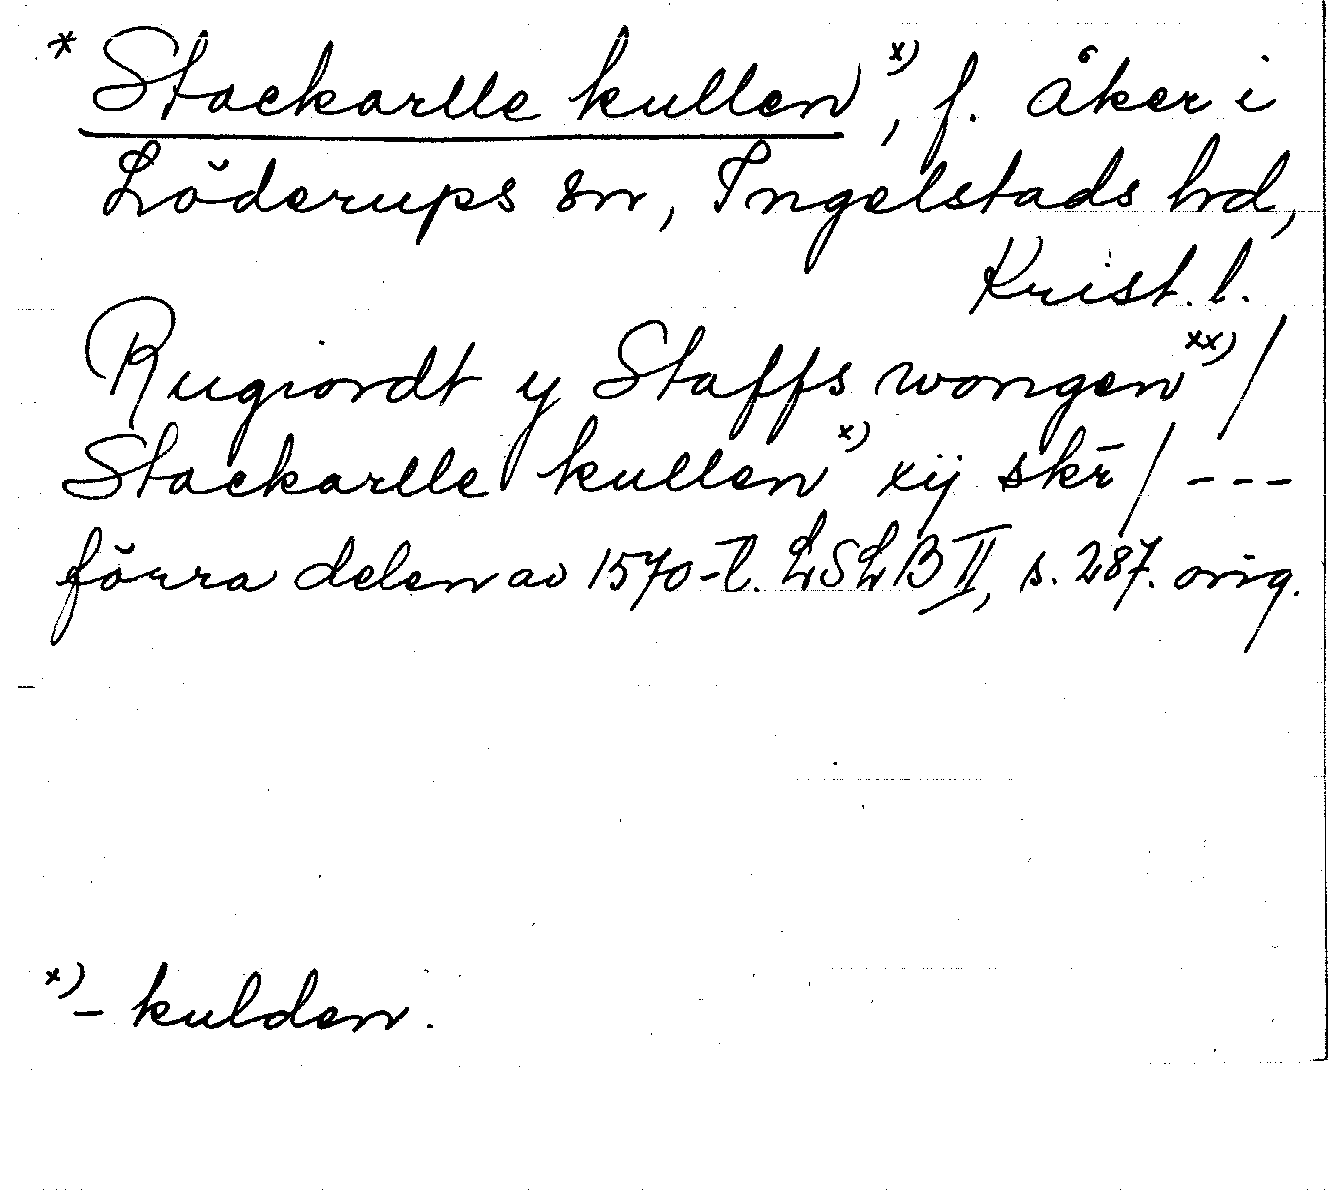 * Stackarlle kullen x), f. åker i
Löderups sn, Ingelstads hd,
Krist. l.
Rugiordt y Staffs wongen xx) /
Stackarlle kullen x) xij skr̄ / ---
förra delen av 1570-t. LSLB II, s. 287. orig.
x) - kulden.